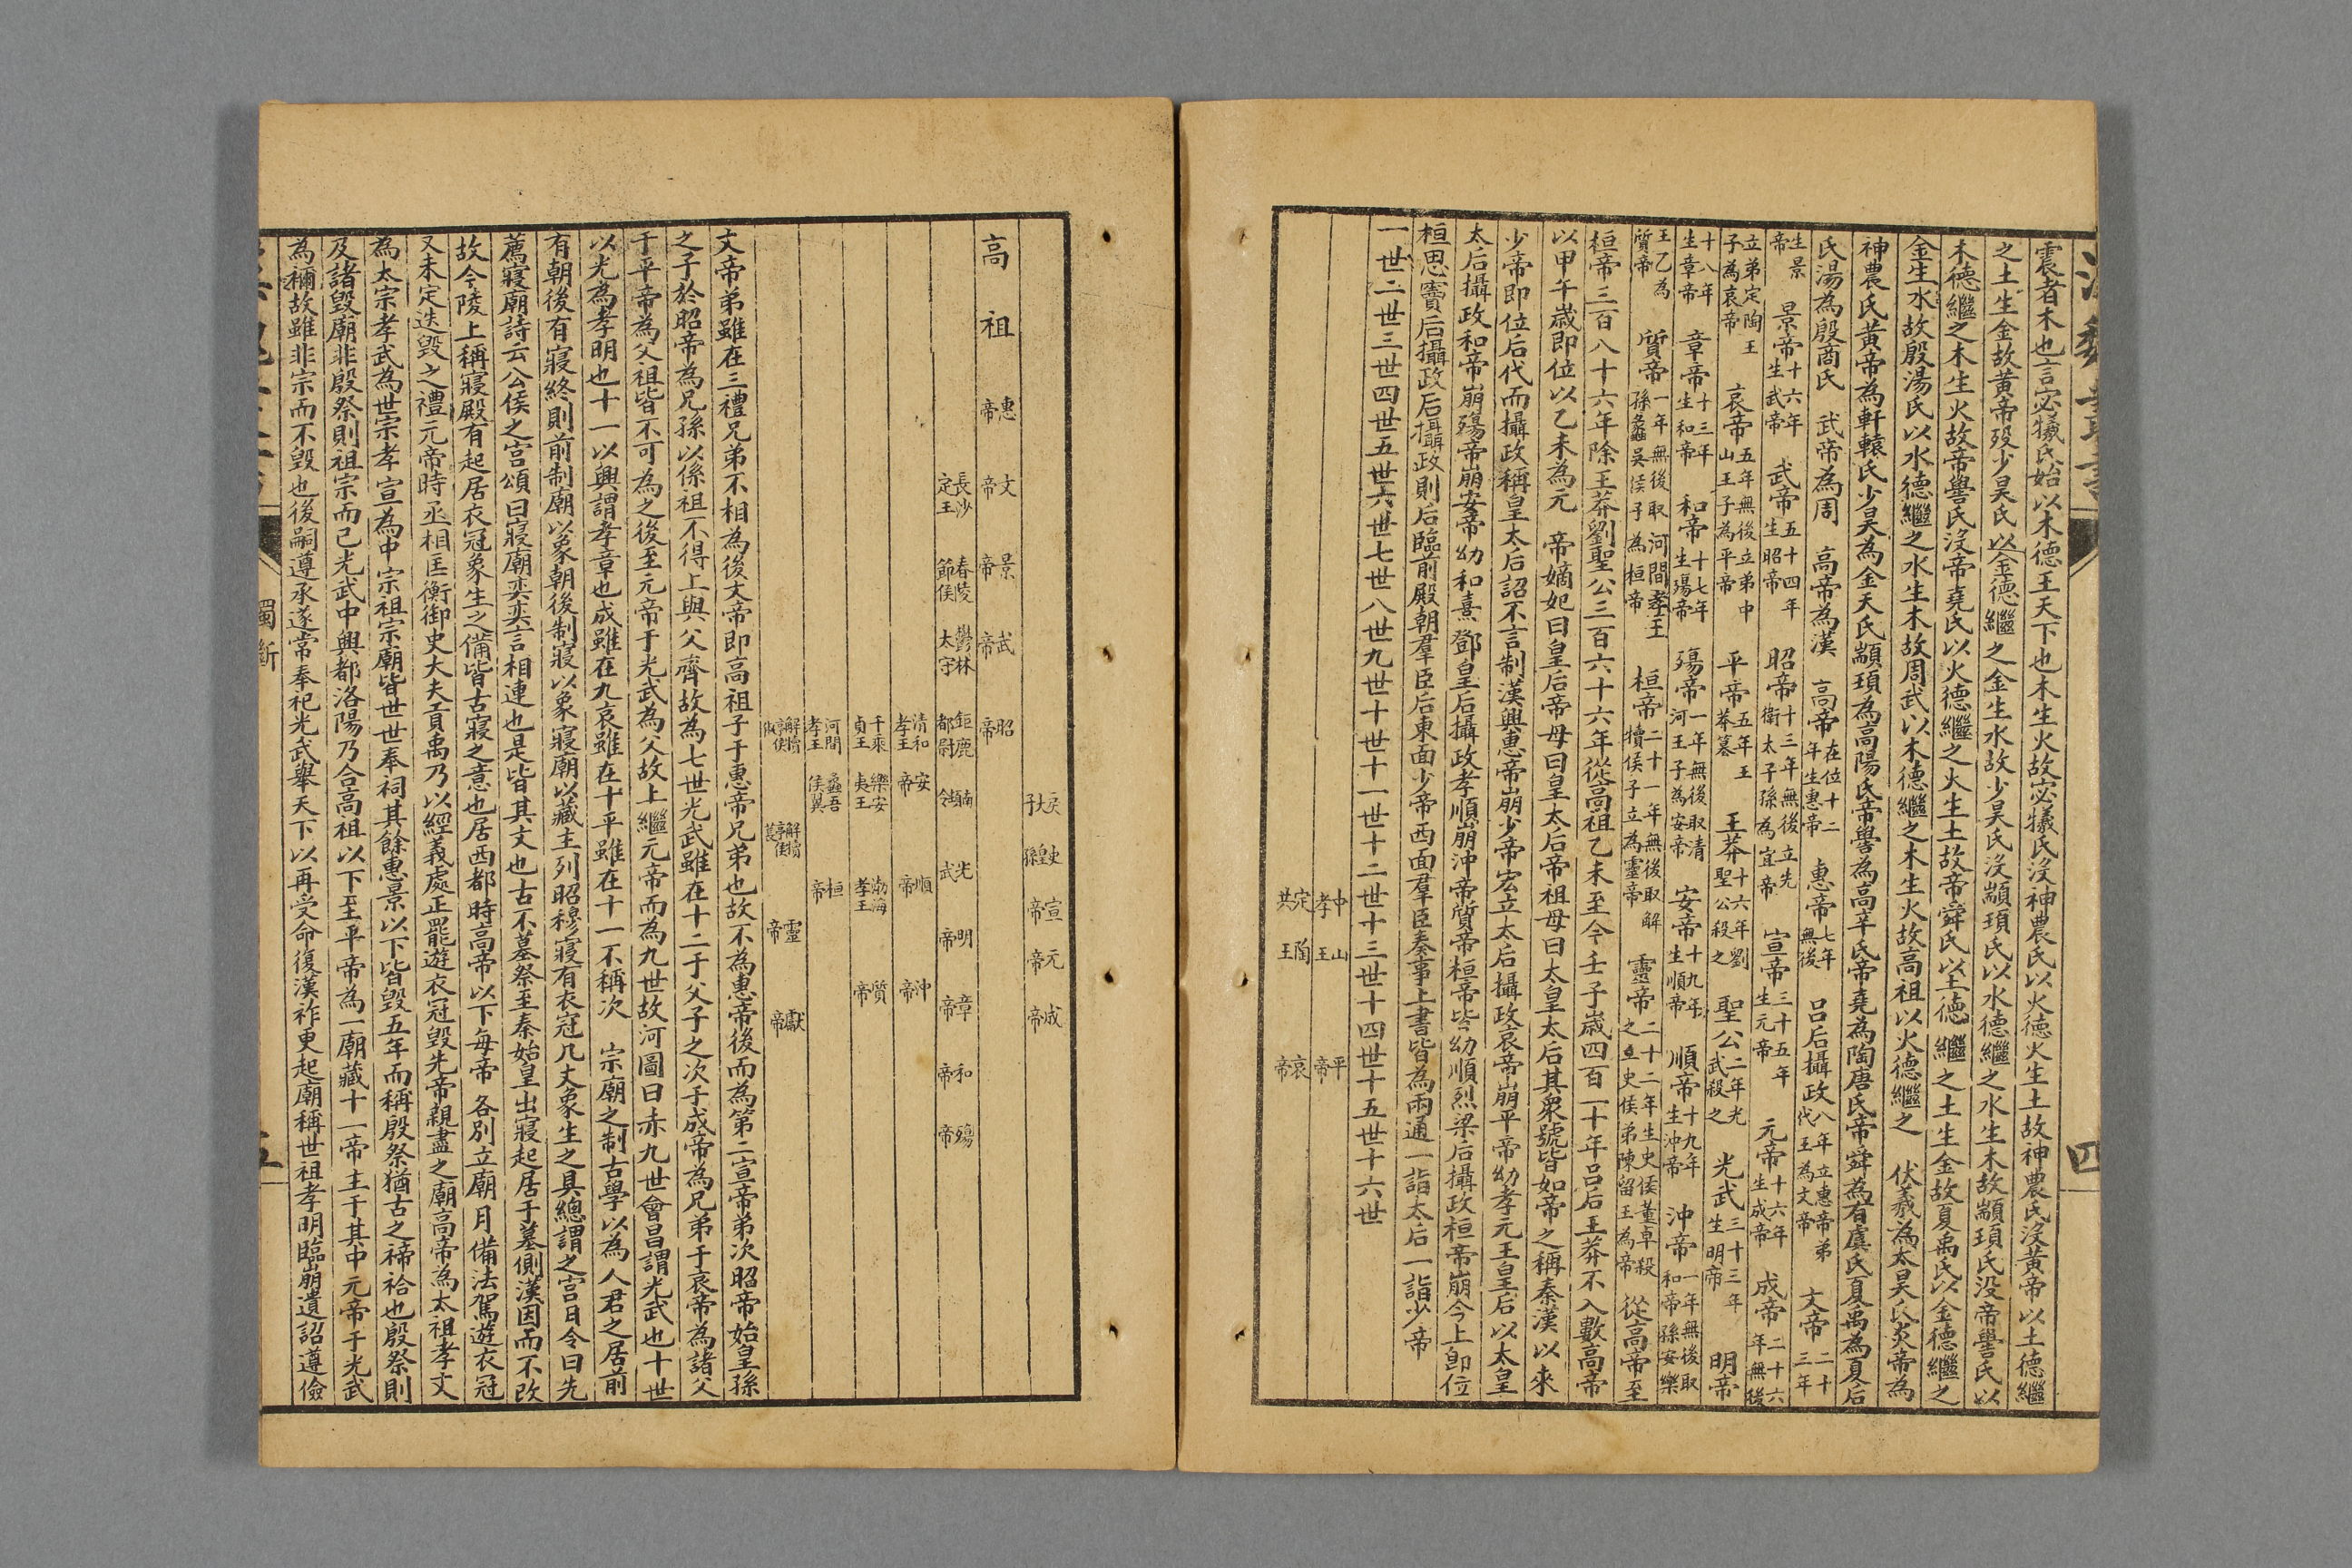 震者木也言宓犧氏始以木德王天下也木生火故宓犧氏沒神農氏以火德火生土故神農氏沒黃帝以土德繼
之土生金故黃帝歿少昊氏以金德繼之金生水故少昊氏沒顓頊氏以水德繼之水生木故顓頊氏沒帝嚳氏以
木德繼之木生火故帝嚳氏沒帝堯氏以火德繼之火生土故帝舜氏以土德繼之土生金故夏禹氏以金德繼之
金生水故殷湯氏以水德繼之水生木故周武以木德繼之木生火故高祖以火德繼之 伏羲為太昊氏炎帝為
神農氏黃帝為軒轅氏少昊為金天氏顓頊為高陽氏帝嚳為高辛氏帝堯為陶唐氏帝舜為有虞氏夏禹為夏后
氏湯為殷商氏 武帝為周 高帝為漢 高帝在位十二年生惠帝 惠帝七年無後 呂后攝政八年立惠帝弟代王為文帝 文帝二十三年
生景帝 景帝十六年生武帝 武帝五十四年生昭帝 昭帝十三年無後立先衛太子孫為宣帝 宣帝三十五年生元帝 元帝十六年生成帝 成帝二十六年無後
立弟定陶王子為哀帝 哀帝五年無後立弟中山王子為平帝 平帝五年王莽篡 王莽十六年劉聖公殺之 聖公二年光武殺之 光武三十三年生明帝 明帝
十八年生章帝 章帝十三年生和帝 和帝十七年生殤帝 殤帝一年無後取清河王子為安帝 安帝十九年生順帝 順帝十九年生沖帝 沖帝一年無後取和帝孫安樂
王乙為質帝 質帝一年無後取河間孝王孫蠡吳侯子為桓帝 桓帝二十一年無後取解犢侯子立為靈帝 靈帝二十二年生史侯董卓殺之立史侯弟陳留王為帝 從高帝至
桓帝三百八十六年除王莽劉聖公三百六十六年從高祖乙未至今壬子歲四百一十年呂后王莽不入數高帝
以甲午歲即位以乙未為元 帝嫡妃曰皇后帝母曰皇太后帝祖母曰太皇太后其衆號皆如帝之稱秦漢以來
少帝即位后代而攝政稱皇太后詔不言制漢興惠帝崩少帝宏立太后攝政哀帝崩平帝幼孝元王皇后以太皇
太后攝政和帝崩殤帝崩安帝幼和熹鄧皇后攝政孝順崩沖帝質帝桓帝皆幼順烈梁后攝政桓帝崩今上即位
桓思竇后攝政后攝政則后臨前殿朝羣臣后東面少帝西面羣臣奏事上書皆為兩通一詣太后一詣少帝
一世二世三世四世五世六世七世八世九世十世十一世十二世十三世十四世十五世十六世
中山孝王 平帝
定陶共王 哀帝
四
戾太子 史皇孫 宣帝 元帝 成帝
高祖 惠帝 文帝 景帝 武帝 昭帝
長沙定王 舂陵節侯 鬱林太守 鉅鹿都尉 南頓令 光武 明帝 章帝 和帝 殤帝
清和孝王 安帝 順帝 沖帝
千乘貞王 樂安夷王 渤海孝王 質帝
河間孝王 蠡吾侯翼 桓帝
解犢亭侯淑 解犢亭侯萇 靈帝 獻帝
文帝弟雖在三禮兄弟不相為後文帝即高祖子于惠帝兄弟也故不為惠帝後而為第二宣帝弟次昭帝始皇孫
之子於昭帝為兄孫以係祖不得上與父齊故為七世光武雖在十二于父子之次于成帝為兄弟于哀帝為諸父
于平帝為父祖皆不可為之後至元帝于光武為父故上繼元帝而為九世故河圖曰赤九世會昌謂光武也十世
以光為孝明也十一以興謂孝章也成雖在九哀雖在十平雖在十一不稱次 宗廟之制古學以為人君之居前
有朝後有寢終則前制廟以象朝後制寢以象寢廟以藏主列昭穆寢有衣冠几丈象生之具總謂之宫日令曰先
薦寢廟詩云公侯之宫頌曰寢廟奕奕言相連也是皆其文也古不墓祭至秦始皇出寢起居于墓側漢因而不改
故今陵上稱寢殿有起居衣冠象生之備皆古寢之意也居西都時高帝以下每帝 各別立廟月備法駕遊衣冠
又未定迭毀之禮元帝時丞相匡衡御史大夫貢禹乃以經義處正罷遊衣冠毀先帝親盡之廟高帝為太祖孝文
為太宗孝武為世宗孝宣為中宗祖宗廟皆世世奉祠其餘惠景以下皆毀五年而稱殷祭猶古之禘祫也殷祭則
及諸毀廟非殷祭則祖宗而已光武中興都洛陽乃合高祖以下至平帝為一廟藏十一帝主于其中元帝于光武
為禰故雖非宗而不毀也後嗣遵承遂常奉祀光武舉天下以再受命復漢祚更起廟稱世祖孝明臨崩遺詔遵儉
獨斷
五